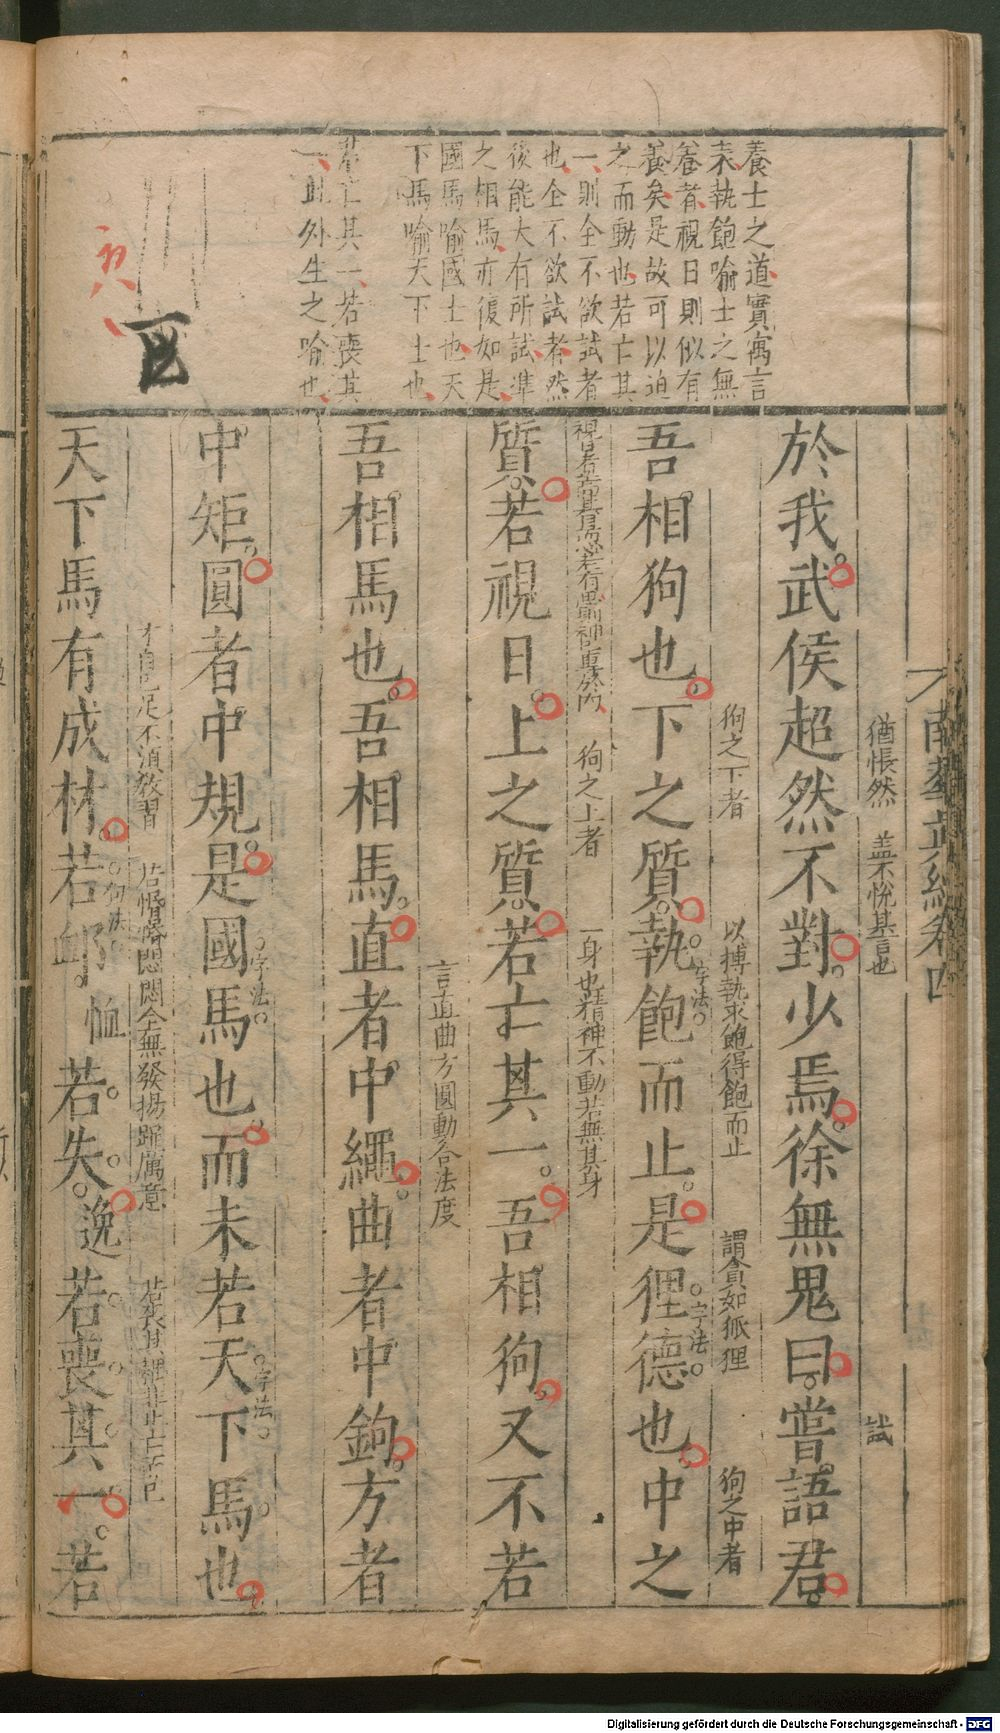 養士之道實寓言
表執飽喻士之無
養者視日則似有
養矣是故可以迫
之而動也若亡其
一則全不欲試者
也全不欲試者然
後能大有所試準
之相馬亦復如是
國馬喻國士也天
下馬喻天下士也
若亡其一若喪其
一此外生之喻也
南華 經卷四
猶悵然 蓋不悅其言也 試
於我武侯超然不對少焉徐無鬼曰嘗語君
狗之下者 以搏執求飽得飽而止 謂貪如狐狸 狗之中者
吾相狗也下之質執飽而止是狸德也中之
字法 字法
視日者 神 內 狗之上者 一身也精神不動若無其身
質若視日上之質若亡其一吾相狗又不若
言直曲方圓動合法度
吾相馬也吾相馬直者中繩曲者中鉤方者
中矩圓者中規是國馬也而未若天下馬也
字法 字法
才自 足不須教習 若惛 悶悶全無發揚 厲意 若喪其
天下馬有成材若卹恤若失逸若喪其一若
句法
Digitalisierung gefördert durch die Deutsche Forschungsgemeinschaft - DFG